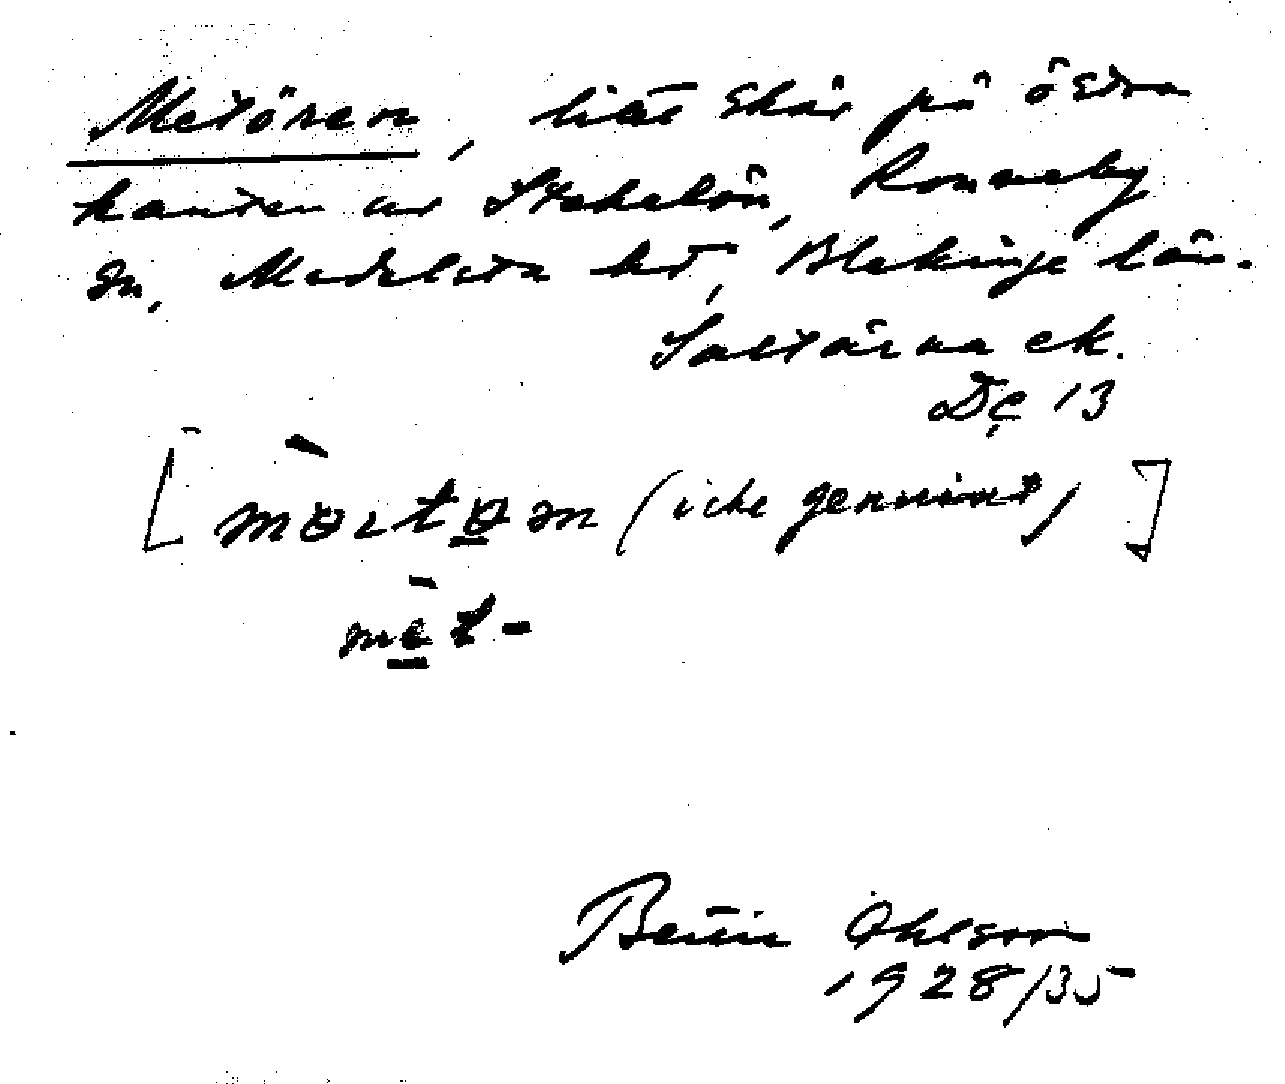 Metören, litet skär på östra
kanten av Stekelön, Ronneby
sn, Medelsta hd, Blekinge län.
Saltärna ek.
(icke genuint)
mèt-
Bertil Ohlson
1928/35